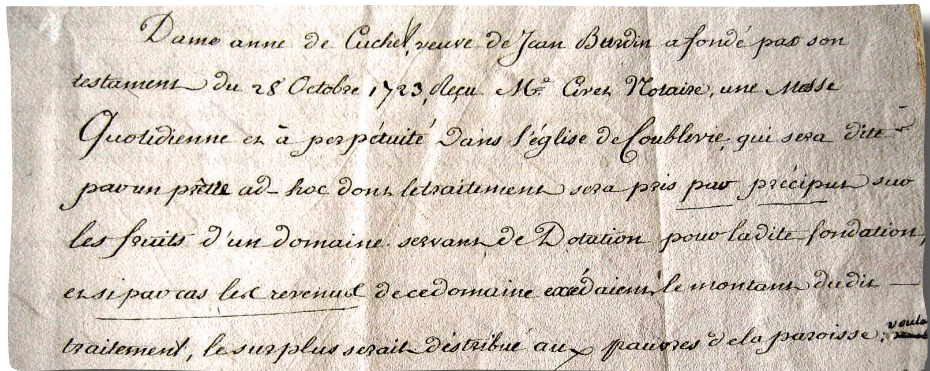 Dame anne de Cuchet, veuve de Jean Burdin a fondé par son
testament du 28 Octobre 1723, Reçu Me. Civet Notaire, une Messe
Quotidienne et à perpétuité dans l'église de Coublevie, qui sera dite
par un prêtre ad-hoc dont le traitement sera pris par préciput sur
les fruits d'un domaine servant de Dotation pour la dite fondation,
et si par cas les revenus de ce domaine excédaient le montant du dit
traitement, le surplus serait distribué aux pauvres de la paroisse;